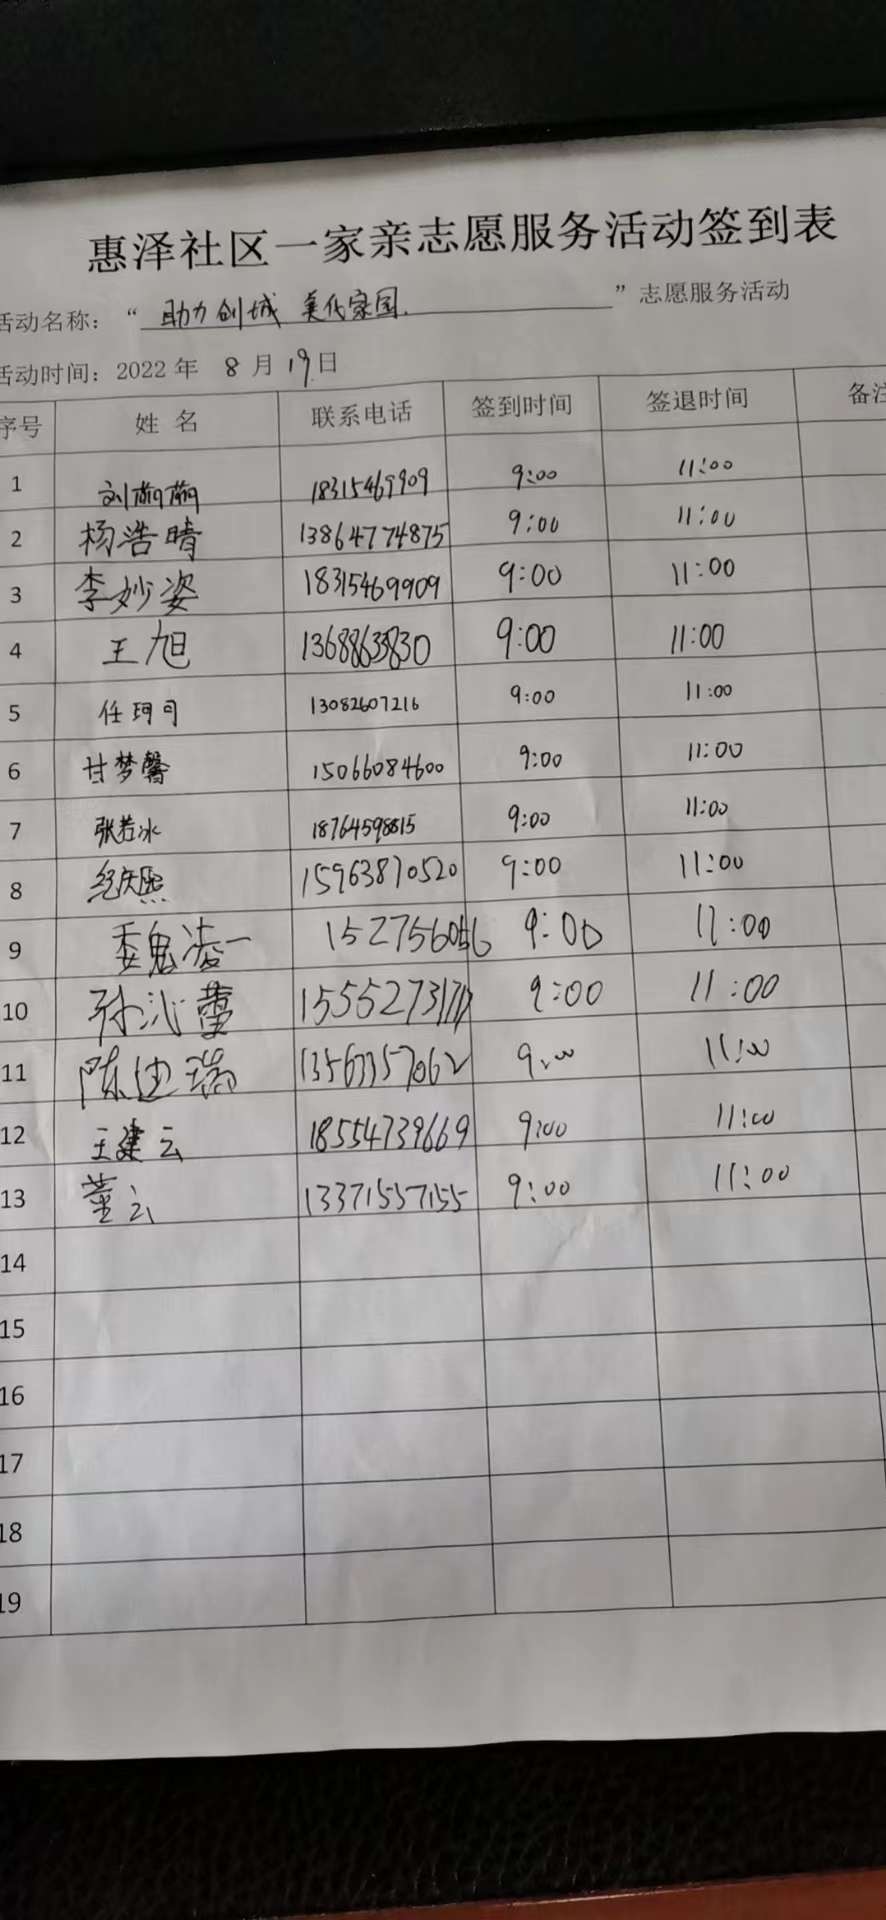 惠泽社区一家亲志愿服务活动签到表
活动名称：“助力创城 美化家园.”志愿服务活动
活动时间：2022年 8月19日
序号 姓名 联系电话 签到时间 签退时间 备注
1 刘 18315469909 9:00 11:00
2 杨浩晴 13864774875 9:00 11:00
3 李妙姿 18315469909 9:00 11:00
4 王旭 9:00 11:00
5 任珂可 13082607216 9:00 11:00
6 甘梦馨 15066084600 9:00 11:00
7 张若冰 18764598815 9:00 11:00
8 纪庆熙 15963870520 9:00 11:00
9 魏凌一 9:00 11:00
10 孙沁蕾 9:00 11:00
11 陈迪瑞 9:00 11:00
12 王建云 18554739669 9:00 11:00
13 董云 13371557155 9:00 11:00
14
15
16
17
18
19